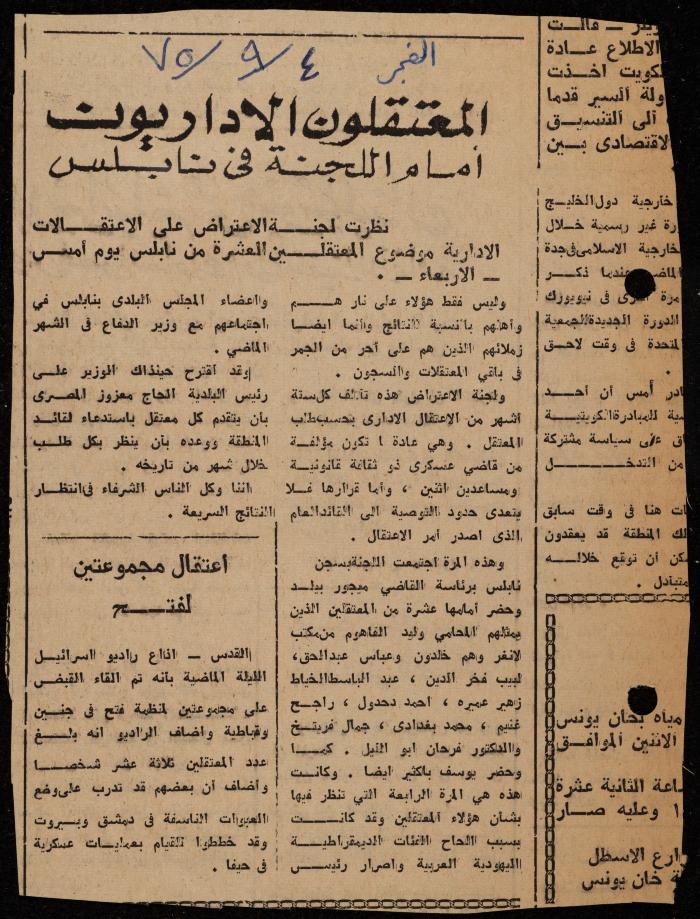 الفجر ٤/٩/٧٥
المعتقلون الاداريون
أمام اللجنة في نابلس
نظرت لجنة الاعتراض على الاعتقالات
الادارية موضوع المعتقلين العشرة من نابلس يوم أمس
ــ الاربعاء ــ .
وليس فقط هؤلاء على نار هم
وأهلهم بالنسبة للنتائج وانما ايضا
زملائهم الذين هم على أحر من الجمر
في باقي المعتقلات والسجون .
ولجنة الاعتراض هذه تتألف كل ستة
أشهر من الاعتقال الادارى بحسب طلب
المعتقل . وهي عادة ا تكون مؤلفة
من قاضي عسكرى ذو ثقافة قانونية
ومساعدين اثنين ، وأما قرارها فلا
يتعدى حدود التوصية الى القائد العام
الذى اصدر أمر الاعتقال .
وهذه المرة اجتمعت اللجنة بسجن
نابلس برئاسة القاضي ميجور بيلد
وحضر أمامها عشرة من المعتقلين الذين
يمثلهم المحامي وليد الفاهوم من مكتب
لانغر وهم خلدون وعباس عبدالحق،
لبيب فخر الدين ، عبد الباسط الخياط
زهير عميره ، احمد دحدول ، راجح
غنيم ، محمد بغدادى ، جمال فريتخ
والدكتور فرحان ابو الليل . كما
وحضر يوسف بالكثير ايضا . وكانت
هذه هي المرة الرابعة التي تنظر فيها
بشأن هؤلاء المعتقلين وقد كانت
بسبب الحاح الفئات الديمقراطية
اليهودية العربية واصرار رئيس
واعضاء المجلس البلدى بنابلس في
اجتماعهم مع وزير الدفاع في الشهر
الماضي .
وقد اقترح حينذاك الوزير على
رئيس البلدية الحاج معزوز المصرى
بأن يتقدم كل معتقل باستدعاء لقائد
المنطقة ووعده بأن ينظر بكل طلب
خلال شهر من تاريخه .
اننا وكل الناس الشرفاء في انتظار
النتائج السريعة .
أعتقال مجموعتين
لفتح
القدس ــ اذاع راديو اسرائيل
الليلة الماضية بأنه تم القاء القبض
على مجموعتين لمنظمة فتح في جنين
وقباطية وأضاف الراديو انه بلغ
عدد المعتقلين ثلاثة عشر شخصا
وأضاف أن بعضهم قد تدرب على وضع
العبوات الناسفة في دمشق وبيروت
وقد خططوا للقيام بعمليات عسكرية
في حيفا .
ــ قالت
الاطلاع عادة
لكويت اخذت
ولة السير قدما
ألى التنسيق
لاقتصادى بين
خارجية دول الخليج
رة غير رسمية خلال
خارجية الاسلامي في جدة
الماضي عندما ذكر
مرة في نيويورك
الدورة الجديدة للجمعية
لمتحدة في وقت لاحق
.
ادر أمس أن أحد
سية للمبادرة الكويتية
ق على سياسة مشتركة
من التدخل
ات هنا في وقت سابق
لك المنطقة قد يعقدون
كن أن توقع خلاله
متبادل .
مياه بخان يونس
الاثنين الموافق
ساعة الثانية عشرة
١ وعليه صار
ارع الاسطل
ة خان يونس